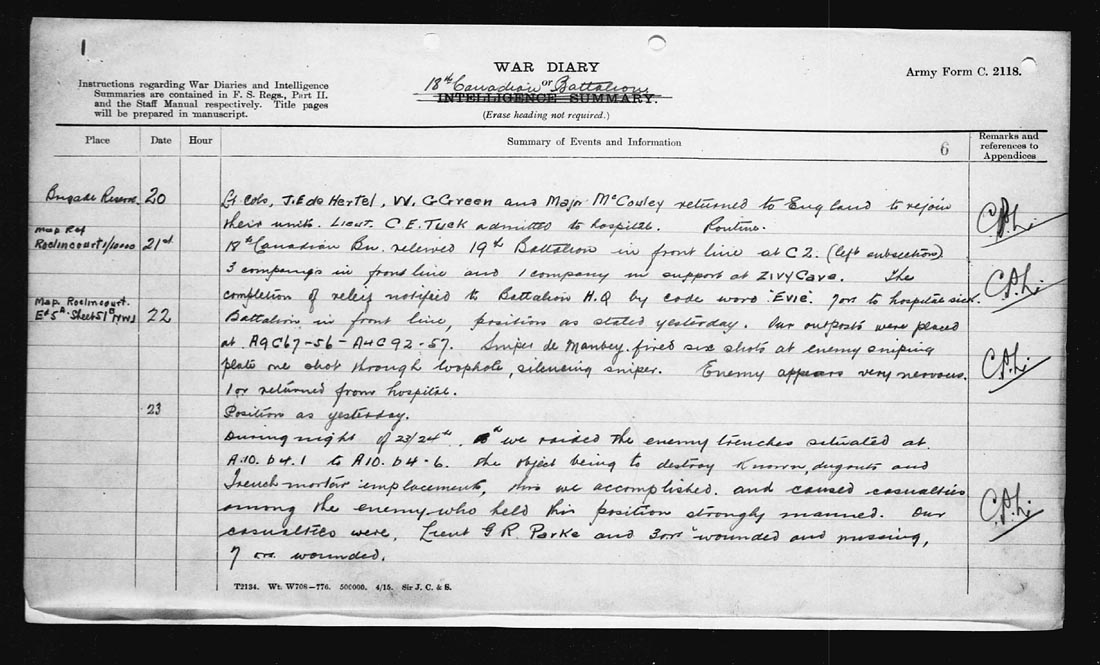 1
WAR DIARY
Army Form C. 2118.
18th Canadian or Battalion
INTELLIGENCE SUMMARY.
(Erase heading not required.)
Instructions regarding War Diaries and Intelligence
Summaries are contained in F. S. Regs., Part II.
and the Staff Manual respectively. Title pages
will be prepared in manuscript.
Place Date Hour Summary of Events and Information 6 Remarks and references to Appendices
Brigade Reserve 20 Lt Cols, J.E de Hertel, W. G Green and Major McCowley returned to England to rejoin
their units. Lieut. C E. Tuck admitted to hospital. Routine.
Map Ref
Roclincourt 1/10000 21st 18th Canadian Bn. relieved 19th Battalion in front line at C2. (left subsection)
3 companys in front line and 1 company in support at Zivy Cave. The
completion of relief notified to Battalion H.Q by code word "Evie". 7 or to hospital sick.
Map. Roclincourt.
Ed 5A. Sheet 51B NW1 22 Battalion in front line, position as stated yesterday. Our outposts were placed
at A9C67-56 - A4C92-57. Sniper de Manbey fired six shots at enemy sniping
plate one shot through loophole, silencing sniper. Enemy appears very nervous.
1 or returned from hospital.
23 Position as yesterday.
During night of 23/24th we raided the enemy trenches situated at
A.10. b4.1 to A10. b4-6. The object being to destroy known, dugouts and
Trench mortar emplacements, this we accomplished and caused casualties
among the enemy who held his position strongly manned. Our
casualties were, Lieut G R Parke and 3 ors "wounded and missing,
7 ors. wounded.
T2134. Wt. W708-776. 500000. 4/15. Sir J. C. & S.